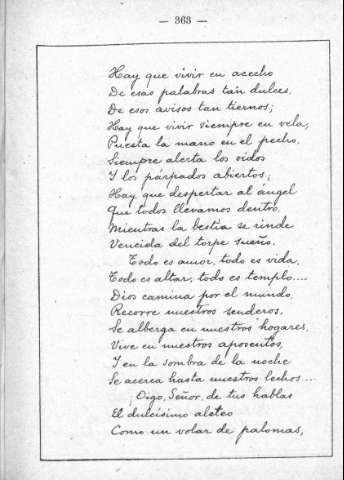 — 363 —
Hay que vivir en acecho
De esas palabras tan dulces,
De esos avisos tan tiernos;
Hay que vivir siempre en vela,
Puesta la mano en el pecho,
Siempre alerta los oidos
Y los párpados abiertos;
Hay que despertar al ángel
Que todos llevamos dentro,
Mientras la bestia se rinde
Vencida del torpe sueño.
Todo es amor, todo es vida,
Todo es altar, todo es templo....
Dios camina por el mundo,
Recorre nuestros senderos,
Se alberga en nuestros hogares,
Vive en nuestros aposentos,
Y en la sombra de la noche
Se acerca hasta nuestros lechos...
¡Oigo, Señor, de tus hablas
El dulcísimo aleteo
Como un volar de palomas,